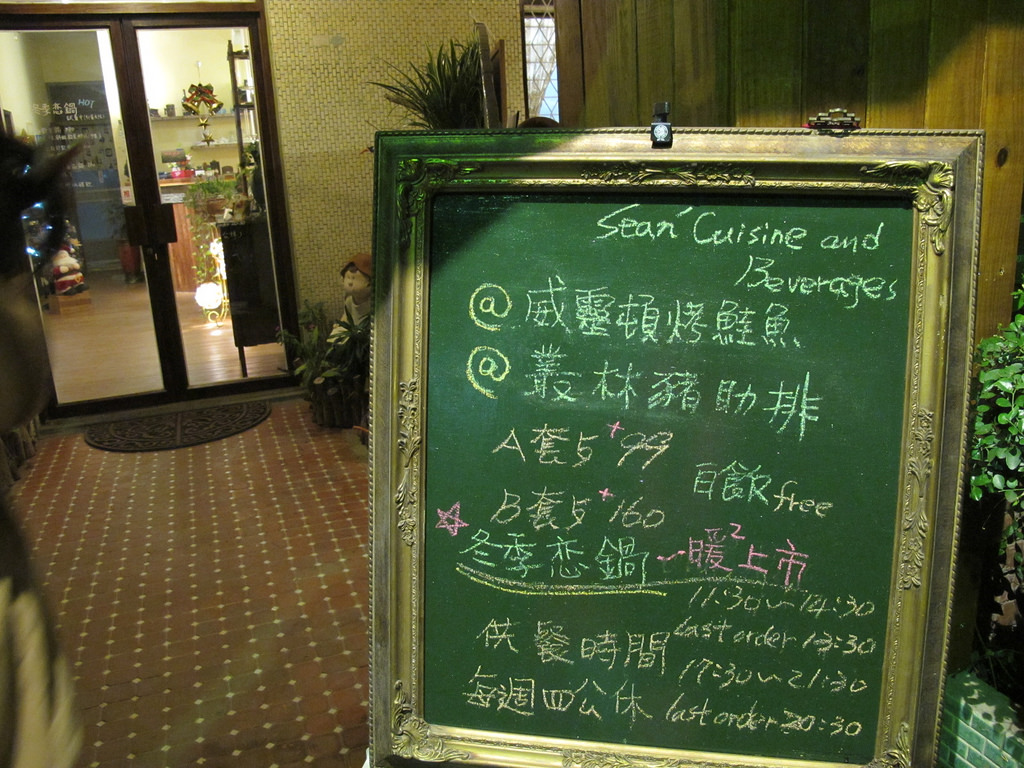 Sean' Cuisine and
Beverages
@ 威靈頓烤鮭魚
@ 叢林豬肋排
A套5+99
B套5+160
白飯free
☆冬季恋鍋~暖²上市
供餐時間
11:30~14:30
last order 13:30
17:30~21:30
last order 20:30
每週四公休
冬季恋鍋 HOT